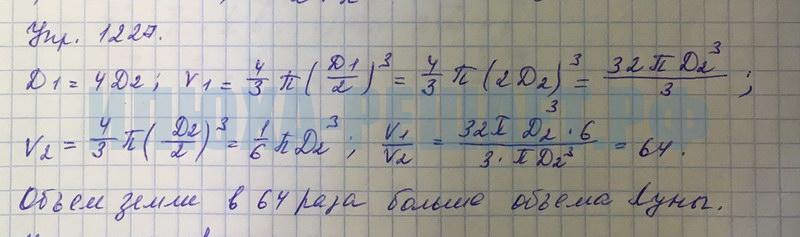 Упр. 1227.
D1 = 4D2; V1 = 4/3 π (D1/2)^3 = 4/3 π (2D2)^3 = 32πD2^3/3;
V2 = 4/3 π (D2/2)^3 = 1/6 πD2^3; V1/V2 = 32π D2^3 · 6/3 · πD2^3 = 64.
Объем земли в 64 раза больше объема Луны.